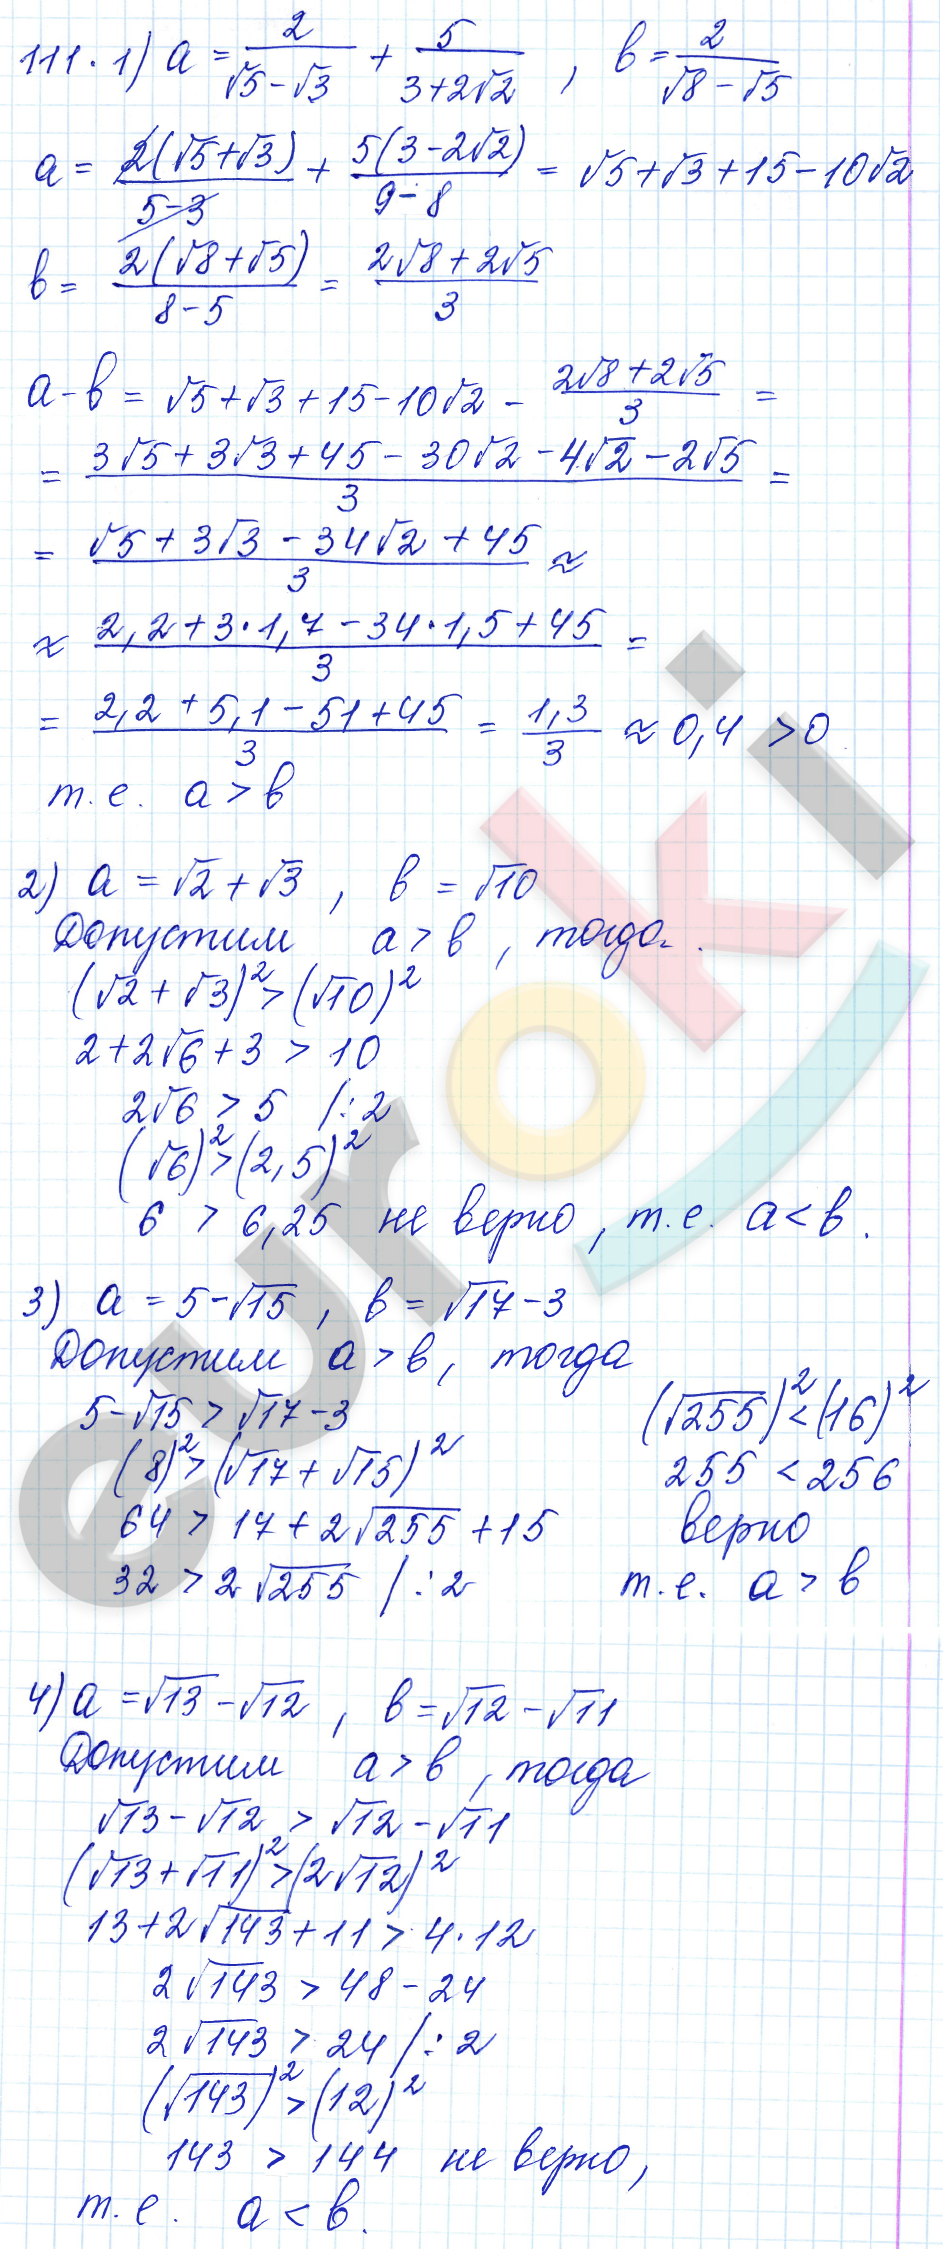 111. 1) a = 2/(√5-√3) + 5/(3+2√2) , b = 2/(√8-√5)
a = 2(√5+√3)/(5-3) + 5(3-2√2)/(9-8) = √5+√3+15-10√2
b = 2(√8+√5)/(8-5) = (2√8+2√5)/3
a-b = √5+√3+15-10√2 - (2√8+2√5)/3 =
= (3√5+3√3+45-30√2-4√2-2√5)/3 =
= (√5+3√3-34√2+45)/3 ≈
≈ (2,2+3·1,7-34·1,5+45)/3 =
= (2,2+5,1-51+45)/3 = 1,3/3 ≈ 0,4 >0
т.е. a > b
2) a = √2+√3 , b = √10
Допустим a > b , тогда.
(√2+√3)² > (√10)²
2+2√6+3 > 10
2√6 > 5 /:2
(√6)² > (2,5)²
6 > 6,25 не верно, т.е. a < b.
3) a = 5-√15 , b = √17-3
Допустим a > b, тогда
5-√15 > √17-3
(8)² > (√17+√15)²
64 > 17+2√255+15
32 > 2√255 /:2
(√255)² < (16)²
255 < 256
верно
т.е. a > b
4) a = √13-√12 , b = √12-√11
Допустим a > b , тогда
√13-√12 > √12-√11
(√13+√11)² > (2√12)²
13+2√143+11 > 4·12
2√143 > 48-24
2√143 > 24 /:2
(√143)² > (12)²
143 > 144 не верно,
т.е. a < b.
euroki